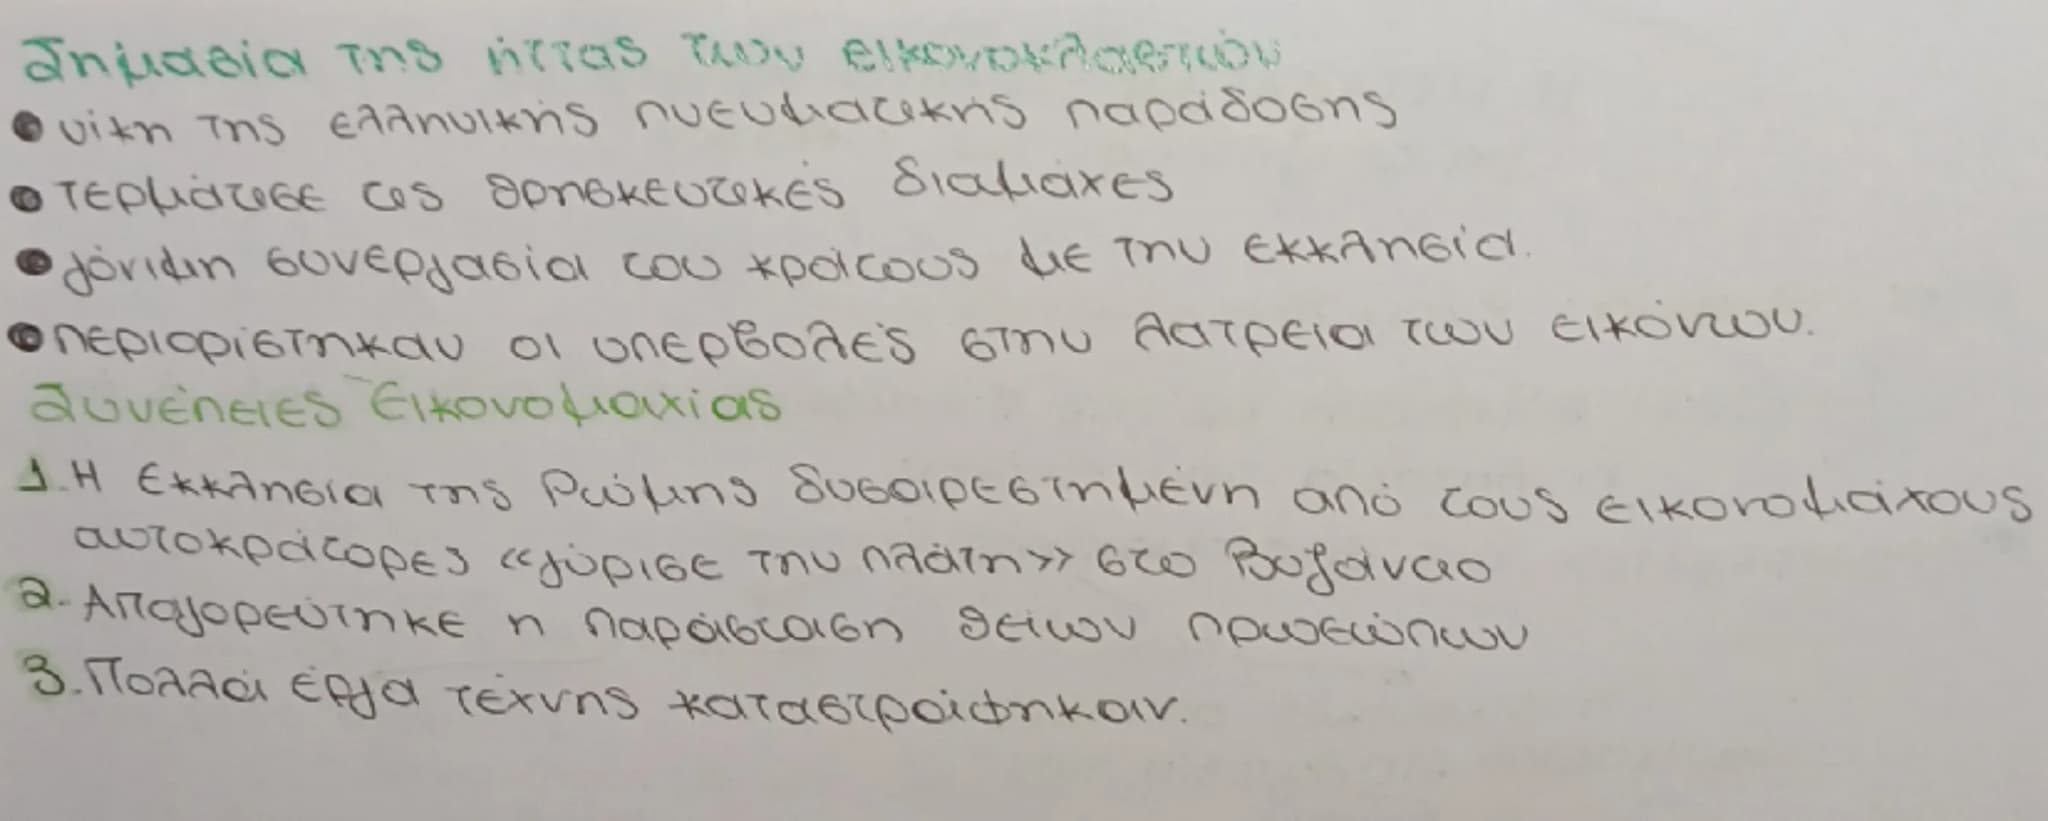 Σημασία της ήττας των εικονοκλαστών
• νίκη της ελληνικής πνευματικής παράδοσης
• τερμάτισε τις θρησκευτικές διαμάχες
• γόνιμη συνεργασία του κράτους με την εκκλησία.
• περιορίστηκαν οι υπερβολές στην λατρεία των εικόνων.
Συνέπειες Εικονομαχίας
1. Η Εκκλησία της Ρώμης δυσαρεστημένη από τους εικονομάχους
αυτοκράτορες «γύρισε την πλάτη» στο Βυζάντιο
2. Απαγορεύτηκε η παράσταση θείων προσώπων
3. Πολλά έργα τέχνης καταστράφηκαν.